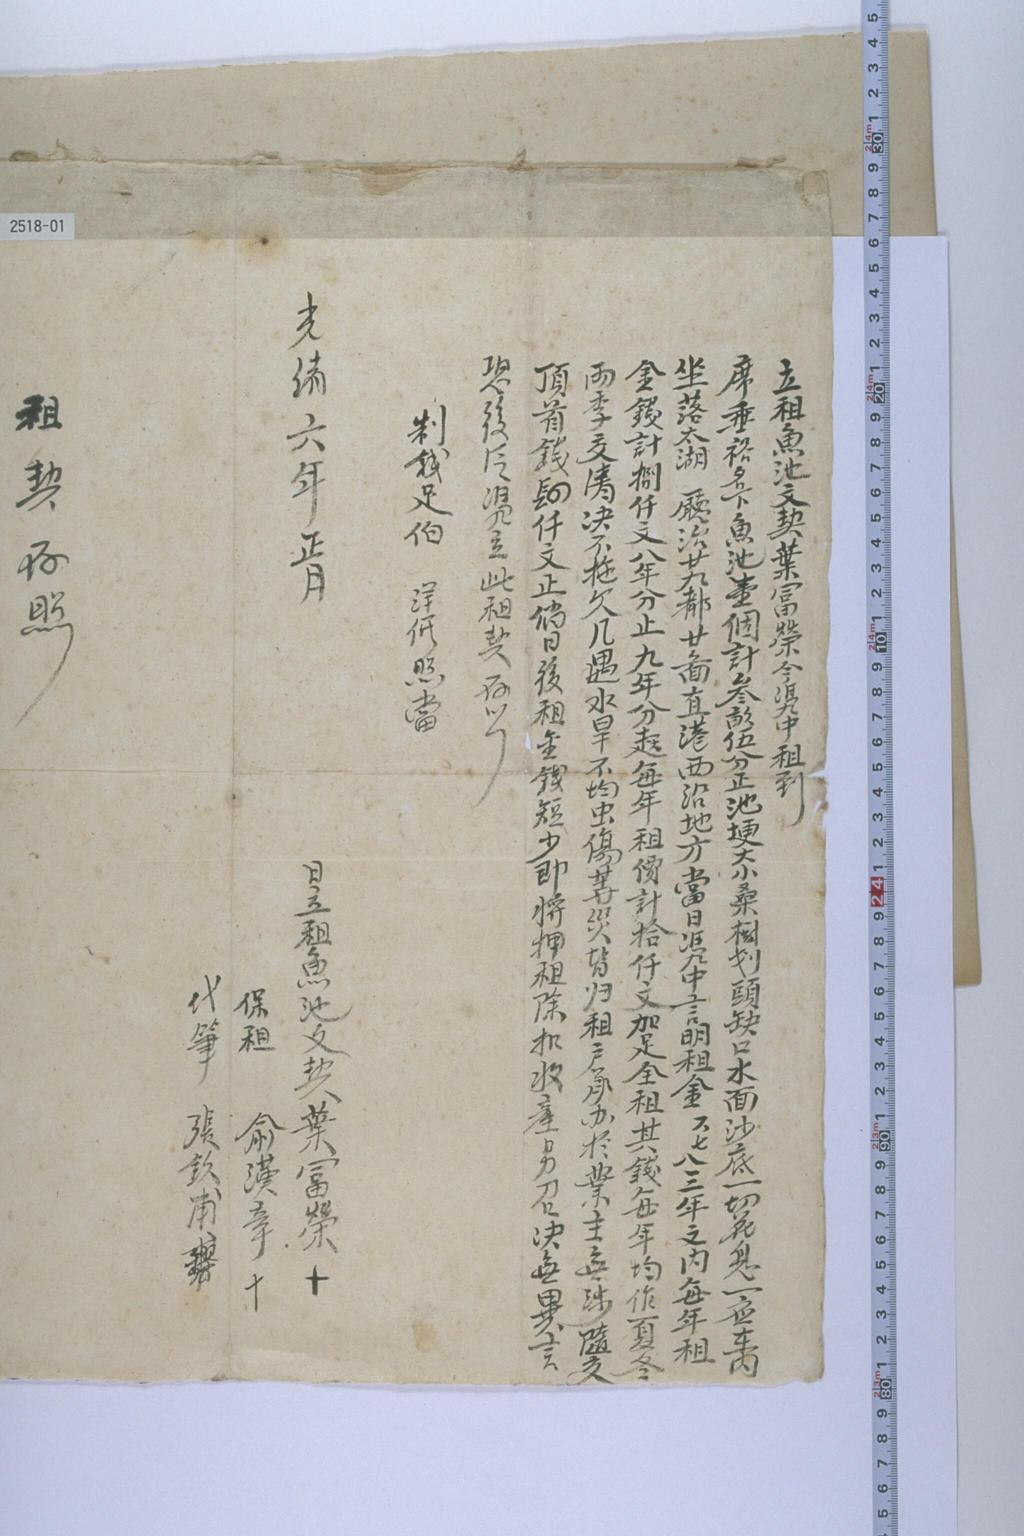 立租魚池文契葉富榮今憑中租到
席乖裕名下魚池壹個計叁畝伍分正池埂大小桑樹划頭缺口水面沙底一切花息一应在內
坐落太湖 廳治廿九都廿啚直港西沿地方當日憑中言明租金 六七八三年之內每年租
金錢計捌仟文八年分止九年分起每年租價計拾仟文加足全租其錢每年均作夏冬
兩季交清决不拖欠凡遇水旱不均虫傷等災皆归租戶承办於業主無涉隨交
頂首錢肆仟文止倘日後租金錢短少即將押租除扣收產另召决無異言
恐後无憑立此租契存照
制錢足伯 洋低照當
光緒六年正月 日立租魚池文契葉富榮 十
保租 俞漢章 十
代筆 張欽甫
租契存照
2518-01